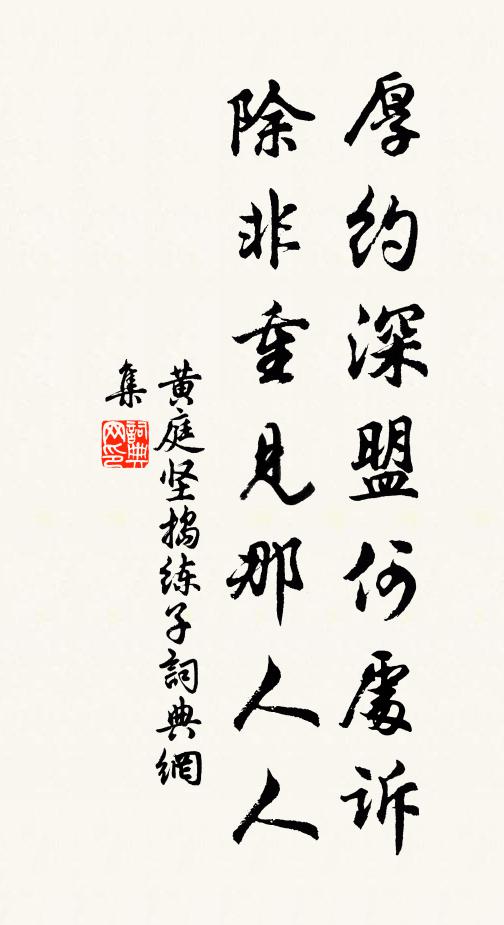 厚约深盟何處诉
除非重见那人人
黄庭坚捣练子詞典網
集
詞典网印